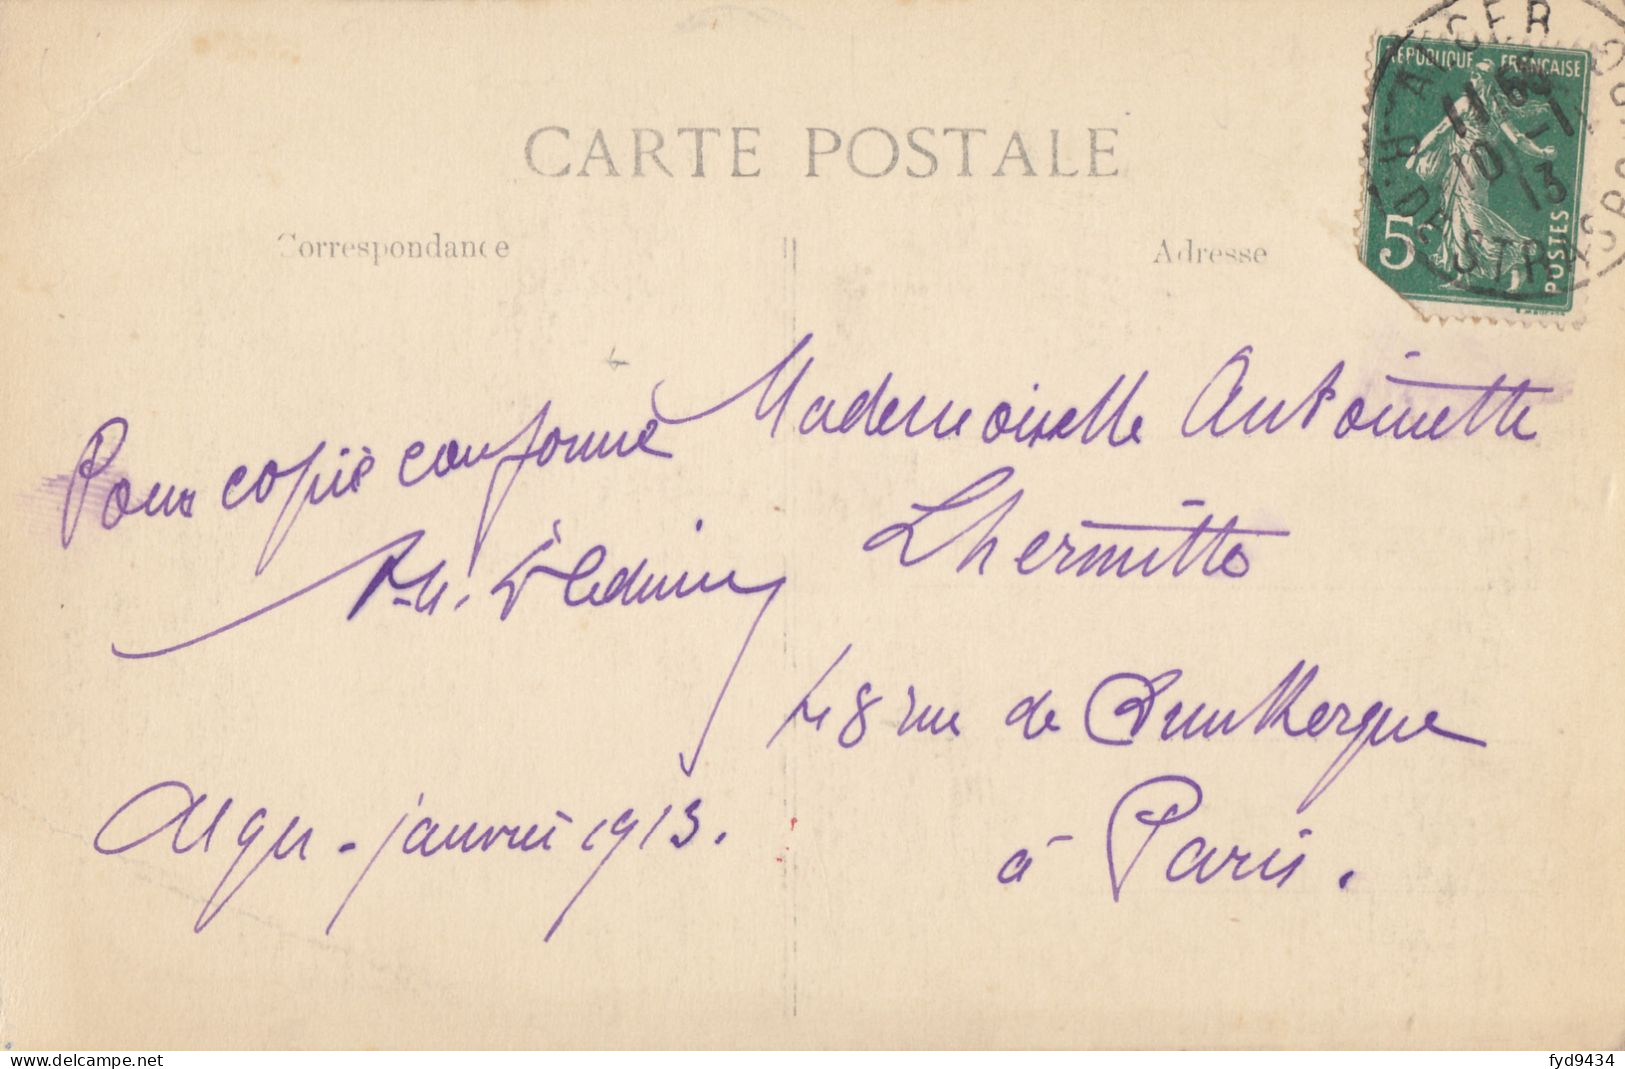 CARTE POSTALE
Correspondance
Adresse
RÉPUBLIQUE FRANÇAISE
5c
POSTES
ALGER
11 65
10 -1
13
R. DE STRASBOURG
Pour copie conforme
Alger - janvier 1913.
Mademoiselle Antoinette
Lhermitte
48 rue de Dunkerque
à Paris.
www.delcampe.net
fyd9434